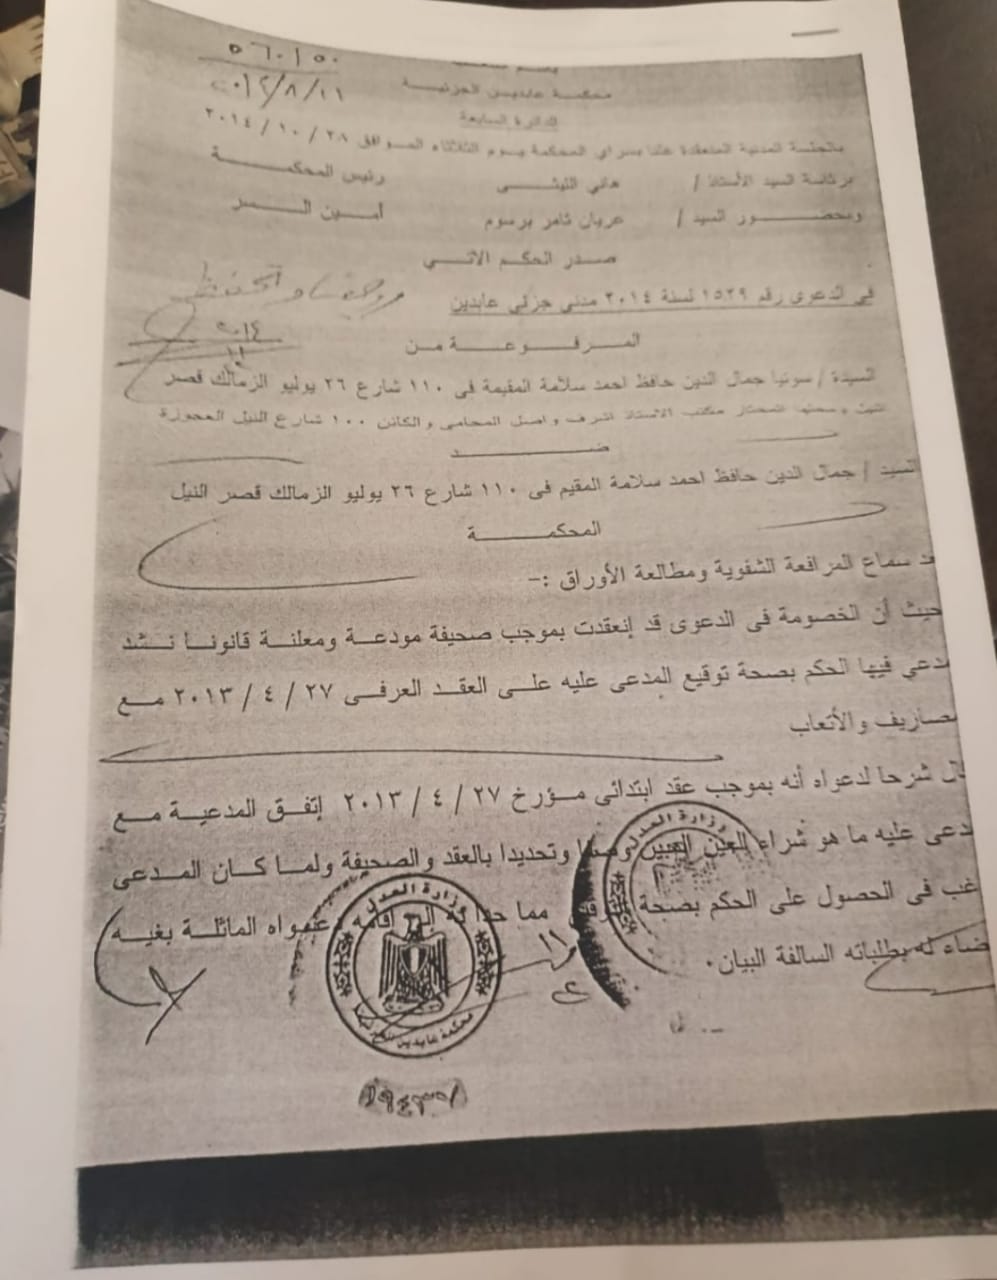 ٥٦٠١٥٠
محكمة عابدين الجزئية
الدائرة السابعة
بالجلسة المدنية المنعقدة علنا بسراي المحكمة يوم الثلاثاء الموافق ٢٨ / ١٠ / ٢٠١٤
برئاسة السيد الأستاذ / هاني الليثى رئيس المحكمة
وبحضور السيد / عريان ثامر برسوم أمين السر
صدر الحكم الاتي
في الدعوى رقم ١٥٢٩ لسنة ٢٠١٤ مدني جزئي عابدين
المرفوعة من
السيدة / سونيا جمال الدين حافظ احمد سلامة المقيمة فى ١١٠ شارع ٢٦ يوليو الزمالك قصر
النيل و محلها المختار مكتب الاستاذ اشرف واصل المحامي والكائن ١٠٠ شارع النيل العجوزة
ضد
السيد / جمال الدين حافظ احمد سلامة المقيم فى ١١٠ شارع ٢٦ يوليو الزمالك قصر النيل
المحكمة
عد سماع المرافعة الشفوية ومطالعة الأوراق :-
حيث أن الخصومة فى الدعوى قد إنعقدت بموجب صحيفة مودعة ومعلنة قانونا نشد
مدعي فيها الحكم بصحة توقيع المدعى عليه على العقد العرفى ٢٧ / ٤ / ٢٠١٣ مع
مصاريف والأتعاب
ال شرحا لدعواه أنه بموجب عقد ابتدائى مؤرخ ٢٧ / ٤ / ٢٠١٣ إتفق المدعية مع
دعى عليه ما هو شراء العين المبين وتحديدا بالعقد والصحيفة ولما كان المدعى
غب فى الحصول على الحكم بصحة مما حدا به إلى إقامة دعواه الماثلة بغيه
ضاء له بطلباته السالفة البيان.
وزارة العدل
وزارة العدل
محكمة عابدين الجزئية